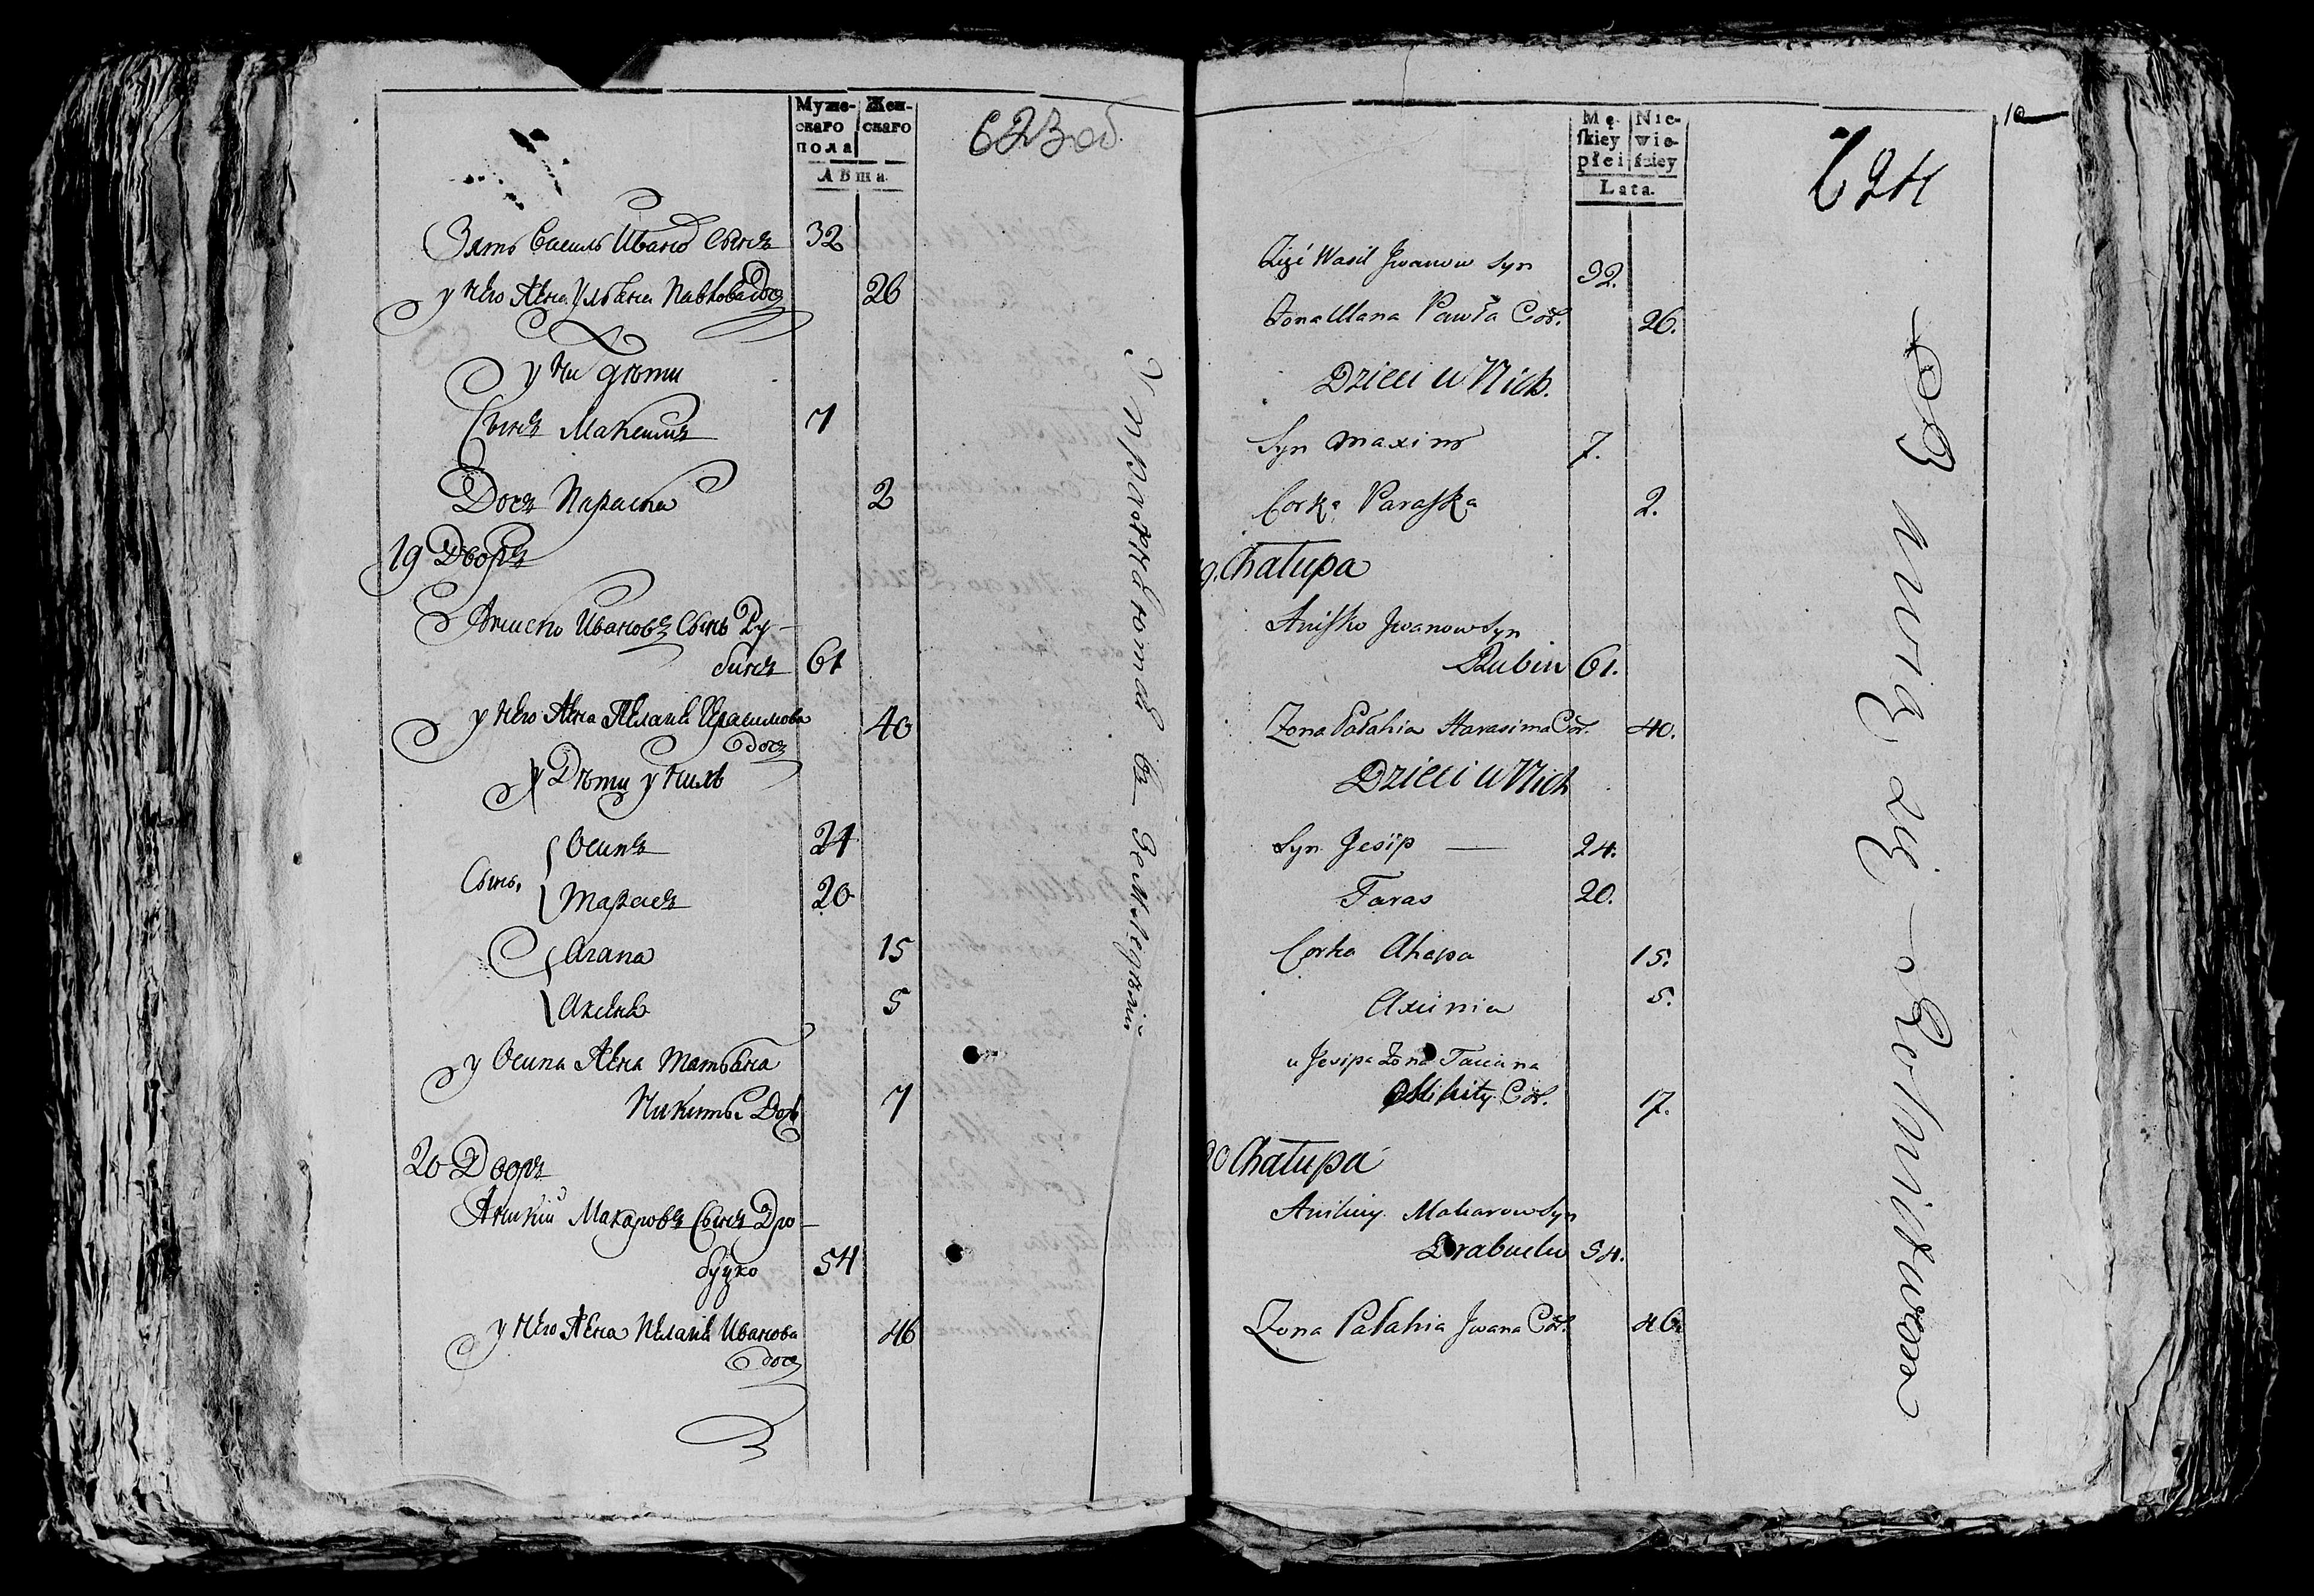 Муже-
скаго
пола
Жен-
скаго
Лѣта
623 об.
Зять Василь Иванов Сынъ 32
у него Жена Ульяна Павлова Доч 26
у них дѣти
Сынъ Максимъ 7
Дочъ Параска 2
19 Дворъ
Аниско Ивановъ Сынъ Ру-
бинъ 61
у него Жена Пелагия Герасимова 40
дочъ
Дѣти у нихъ
Осипъ 24
Сыны
Тарасъ 20
Агапа 15
Аксеня 5
у Осипа Жена Татьяна
Никиты Доч 7
20 Дворъ
Аникий Макаровъ Сынъ Дро-
буцко 54
у него Жена Пелагия Иванова 46
дочъ
Mę-
ſkiey
płei
Nie-
wie-
ściey
Lata.
10
624
Zięć Wasil Jwanow Syn 32.
Zona Ulana Pawła Cór. 26.
Dzieci u Nich.
Syn Maxim 7.
Corka Paraſka 2.
9. Chałupa
Aniſko Jwanow Syn
Rubin 61.
Zona Pałahia Harasima Cór. 40.
Dzieci u Nich
Syn Jesip — 24.
Taras 20.
Corka Ahapa 15.
Axinia 5.
u Jesipa Zona Taciana
Mikity Cór. 17.
0 Chałupa
Anikiy Makarow Syn
Drabucko 54.
Zona Pałahia Jwana Cór. 46.